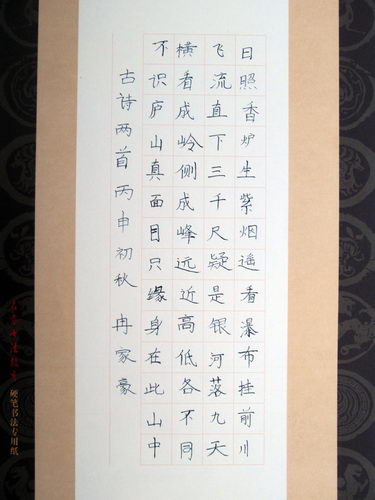 日照香炉生紫烟遥看瀑布挂前川
飞流直下三千尺疑是银河落九天
横看成岭侧成峰远近高低各不同
不识庐山真面目只缘身在此山中
古诗两首 丙申初秋 冉家豪
硬笔书法专用纸